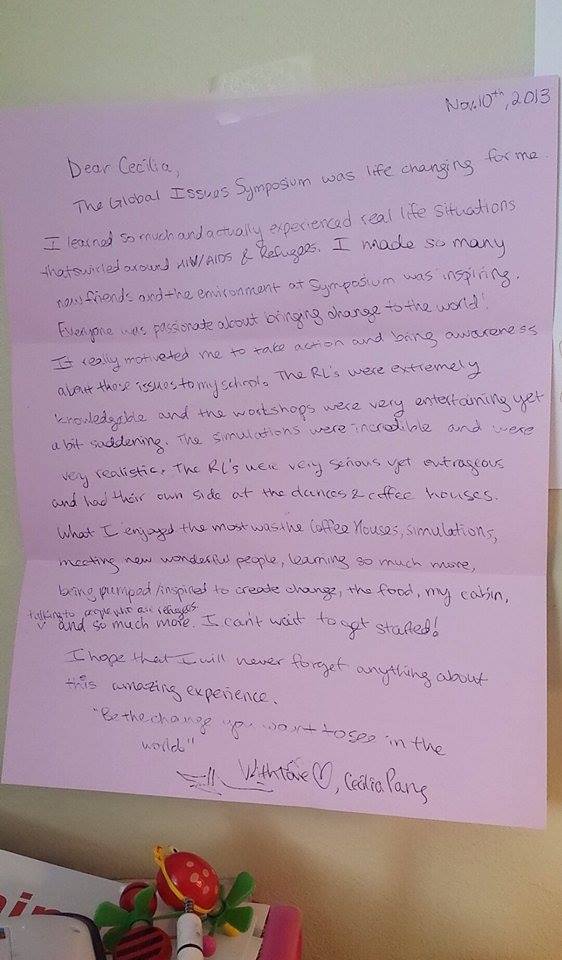 Nov.10th, 2013
Dear Cecilia,
The Global Issues Symposium was life changing for me.
I learned so much and actually experienced real life situations
that swirled around HIV/AIDS & Refugees. I made so many
new friends and the environment at Symposium was inspiring.
Everyone was passionate about bringing change to the world!
It really motiveted me to take action and bring awareness
about these issues to my school. The RL's were extremely
knowledgable and the workshops were very entertaining yet
a bit saddening. The simulations were incredible and were
very realistic. The RL's were very serious yet outrageous
and had their own side at the dances & coffee houses.
What I enjoyed the most was the Coffee Houses, simulations,
meeting new wonderful people, learning so much more,
being pumped/inspired to create change, the food, my cabin,
talking to people who are refugees
and so much more. I can't wait to get started!
I hope that I will never forget anything about
this amazing experience.
"Be the change you want to see in the
world"
With love ♡, Cecilia Pang